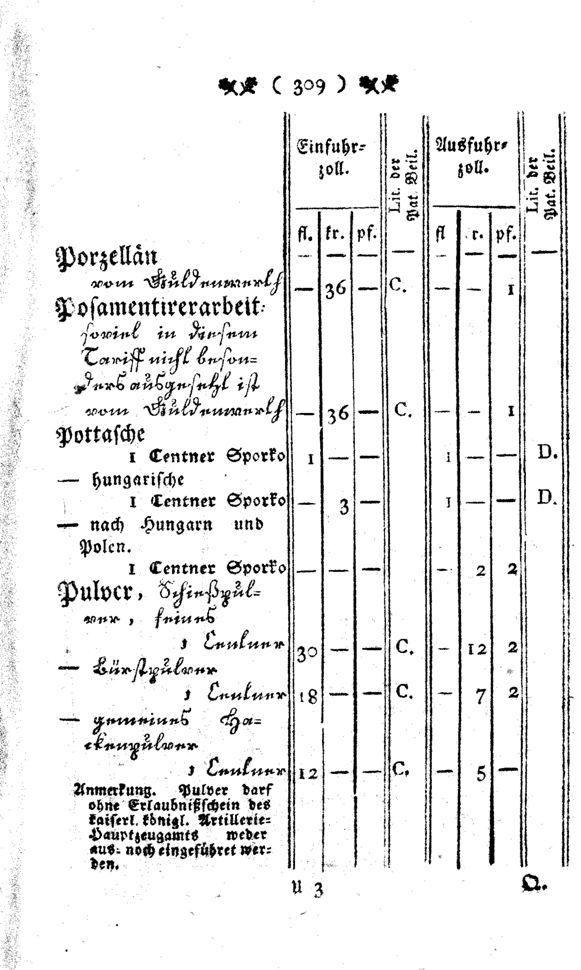 ( 309 )
Einfuhr= zoll. Lit. der Pat. Beil. Ausfuhr= zoll. Lit. der Pat. Beil.
fl. kr. pf. — fl r. pf. —
Porzellän — — — — — —
vom Guldenwerth — 36 — C. — — 1
Posamentirerarbeit:
soviel in diesem
Tariff nicht beson=
ders ausgesetzt ist
vom Guldenwerth — 36 — C. — — 1
Pottasche
1 Centner Sporko 1 — — 1 — — D.
— hungarische
1 Centner Sporko — 3 — 1 — — D.
— nach Hungarn und
Polen.
1 Centner Sporko — — — — 2 2
Pulver, Schießpul=
ver, feines
1 Centner 30 — — C. — 12 2
— Bürstpulver
1 Centner 18 — — C. — 7 2
— gemeines Ha=
ckenpulver
1 Centner 12 — — C. — 5 —
Anmerkung. Pulver darf
ohne Erlaubnißschein des
kaiserl. königl. Artillerie=
Hauptzeugamts weder
aus= noch eingeführet wer=
den.
U 3 Q.